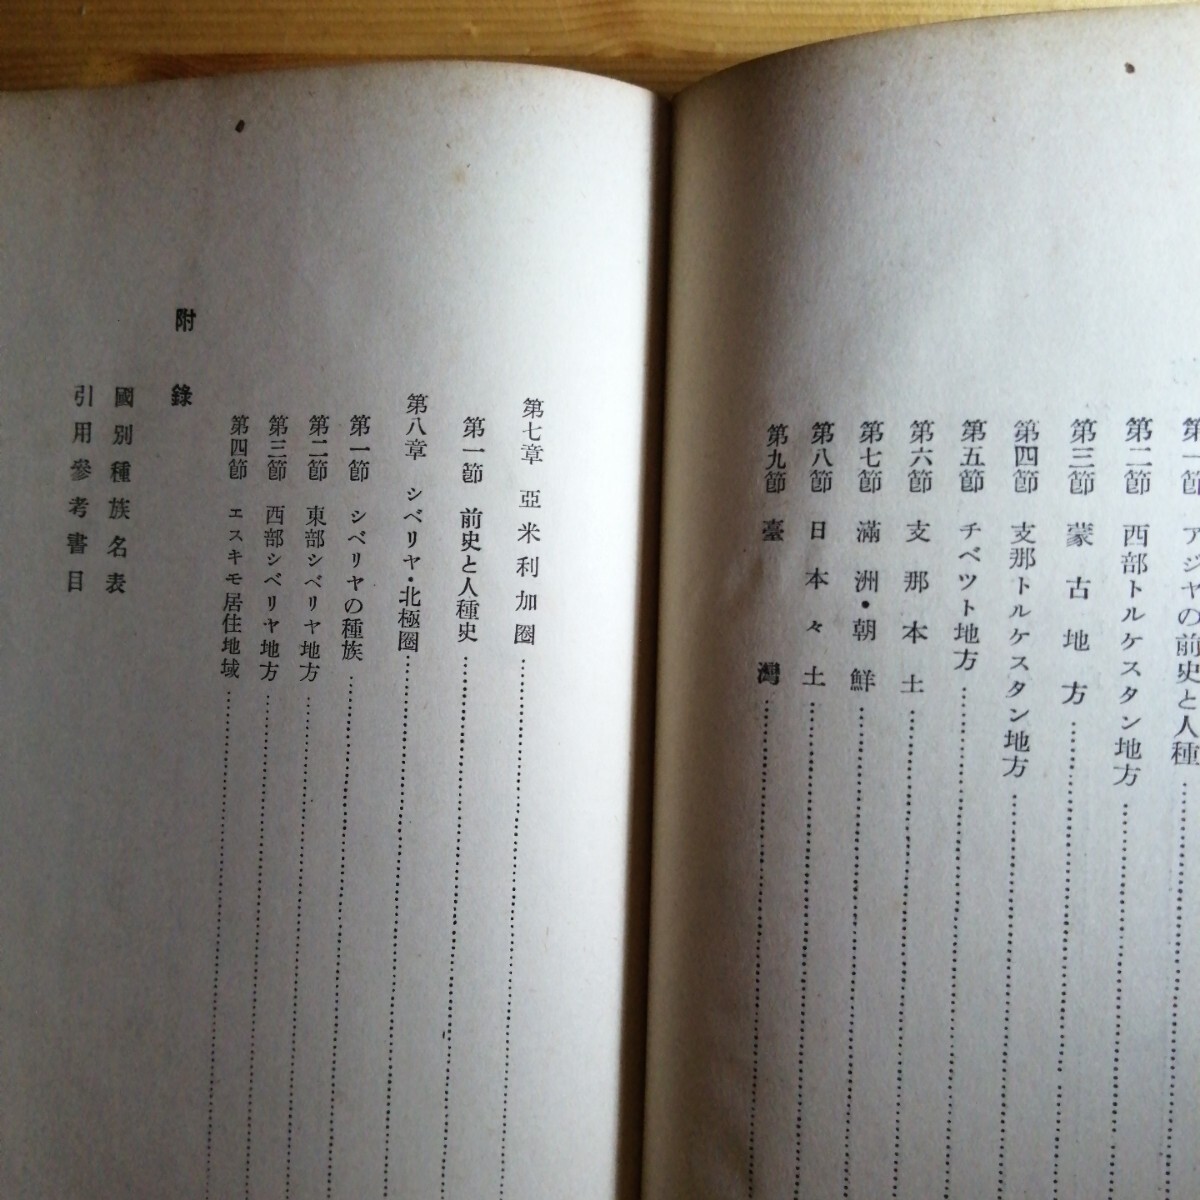 第一節 アジヤの前史と人種
第二節 西部トルケスタン地方
第三節 蒙古地方
第四節 支那トルケスタン地方
第五節 チベツト地方
第六節 支那本土
第七節 滿洲・朝鮮
第八節 日本々土
第九節 臺灣
第七章 亞米利加圈
第一節 前史と人種史
第八章 シベリヤ・北極圈
第一節 シベリヤの種族
第二節 東部シベリヤ地方
第三節 西部シベリヤ地方
第四節 エスキモ居住地域
附錄
國別種族名表
引用參考書目